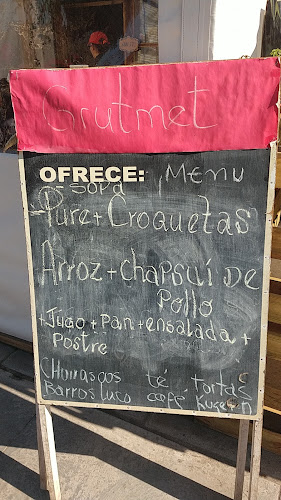 Grutmet
OFRECE: Menu
- Sopa
- Pure + Croquetas
Arroz + chapsui DE
Pollo
+ Jugo + pan + ensalada +
postre
Churrascos té tortas
Barros Luco café Kuchen